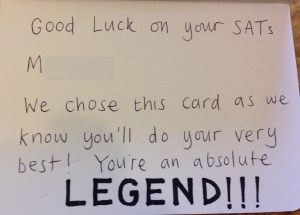 Good Luck on your SATs
M
We chose this card as we
know you'll do your very
best! You're an absolute
LEGEND!!!